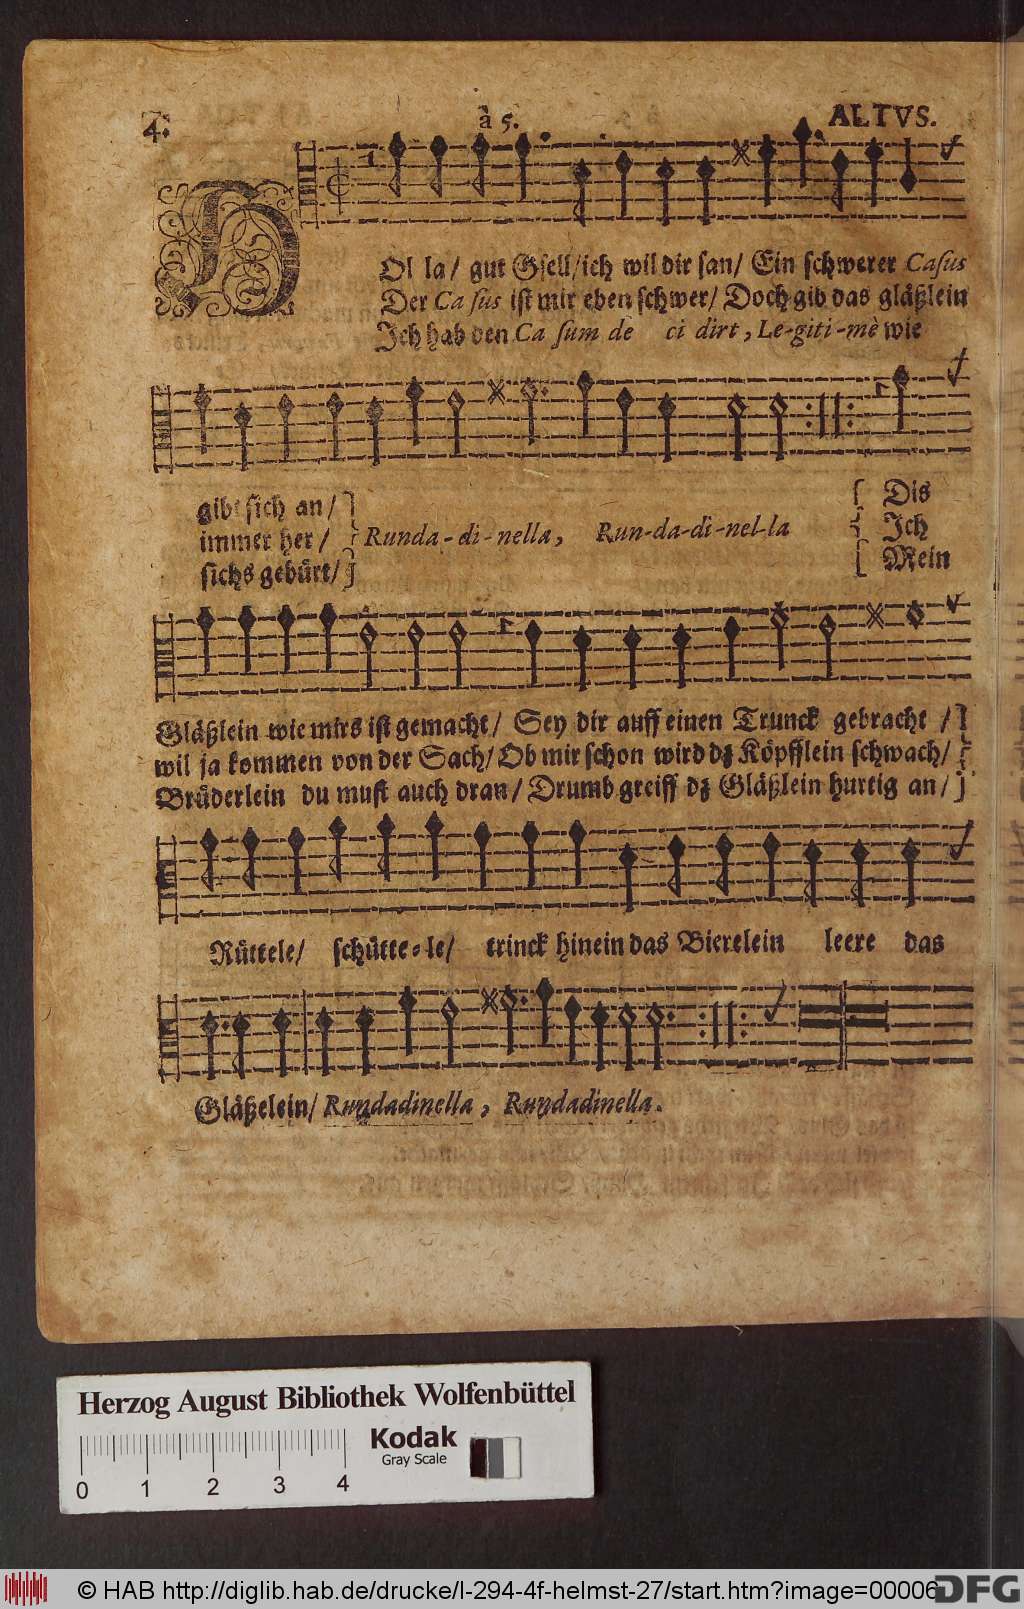 4.
à 5.
ALTVS.
HOl la/ gut Gsell/ich wil dir san/ Ein schwerer Casus
Der Ca sus ist mir eben schwer/ Doch gib das gläßlein
Ich hab den Ca sum de ci dirt, Le-giti-mè wie
gibt sich an/
immer her/
sichs gebürt/
Runda-di-nella, Run-da-di-nel-la
Dis
Ich
Mein
Gläßlein wie mirs ist gemacht/ Sey dir auff einen Trunck gebracht /
wil ja kommen von der Sach/ Ob mir schon wird dz Köpfflein schwach/
Brüderlein du must auch dran/ Drumb greiff dz Gläßlein hurtig an/
Rüttele/ schütte-le/ trinck hinein das Bierelein leere das
Gläßelein/ Rundadinella, Rundadinella.
Herzog August Bibliothek Wolfenbüttel
Kodak
Gray Scale
0 1 2 3 4
© HAB http://diglib.hab.de/drucke/l-294-4f-helmst-27/start.htm?image=00006
DFG